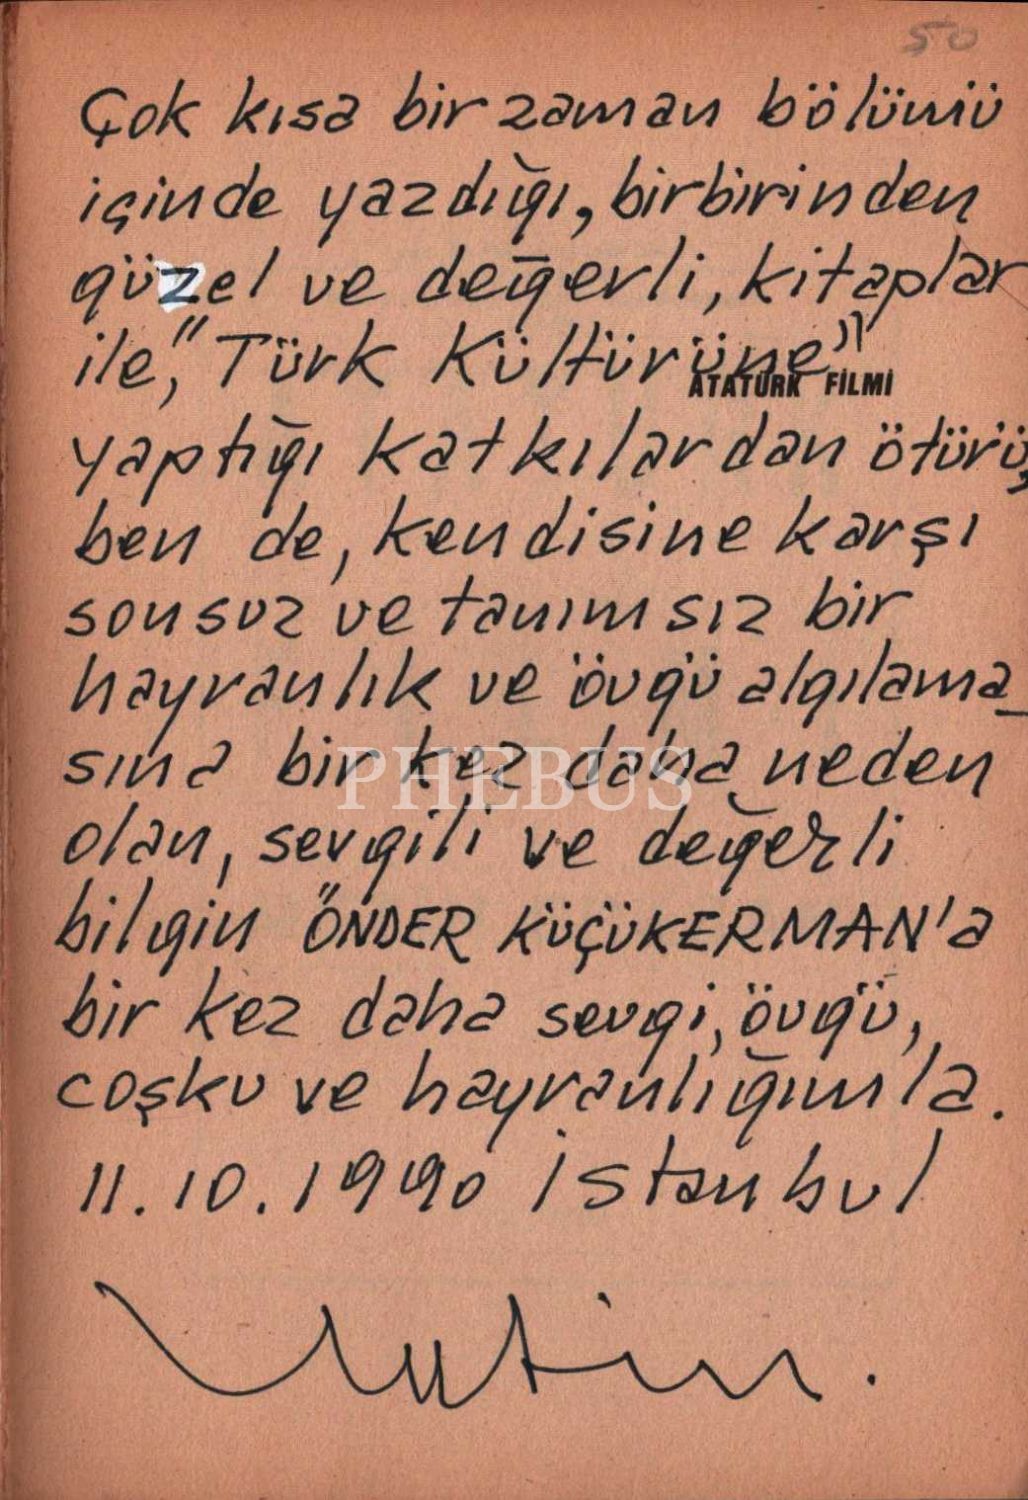 50
Çok kısa bir zaman bölümü
içinde yazdığı, birbirinden
güzel ve değerli, kitaplar
ile, "Türk Kültürüne"
ATATÜRK FİLMİ
yaptığı katkılardan ötürü,
ben de, kendisine karşı
sonsuz ve tanımsız bir
hayranlık ve övgü algılama_
sına bir kez daha neden
PHEBUS
olan, sevgili ve değerli
bilgin ÖNDER KÜÇÜKERMAN'a
bir kez daha sevgi, övgü,
coşku ve hayranlığımla.
11.10.1990 İstanbul